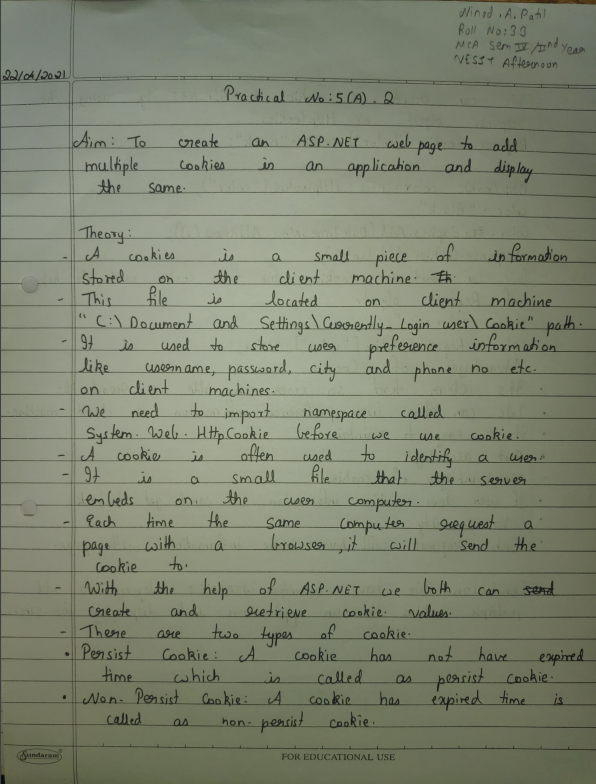 Ninad . A. Patil
Roll No: 33
MCA Sem IV / IInd Year
NESIT Afternoon
22/04/2021
Practical No: 5(A) . 2
Aim: To create an ASP.NET web page to add
multiple cookies in an application and display
the same.
Theory:
- A cookies is a small piece of information
stored on the client machine.
- This file is located on client machine
"C:\ Document and Settings\ Currently_Login user\ Cookie" path.
- It is used to store user preference information
like username, password, city and phone no etc.
on client machines.
- We need to import namespace called
System. Web. HttpCookie before we use cookie.
- A cookie is often used to identify a user.
- It is a small file that the server
embeds on the user computer.
- Each time the same computer request a
page with a browser, it will send the
cookie to.
- With the help of ASP.NET we both can send
create and retrieve cookie values.
- There are two types of cookie.
• Persist Cookie: A cookie has not have expired
time which is called as persist cookie.
• Non-Persist Cookie: A cookie has expired time is
called as non-persist cookie.
Sundaram
FOR EDUCATIONAL USE